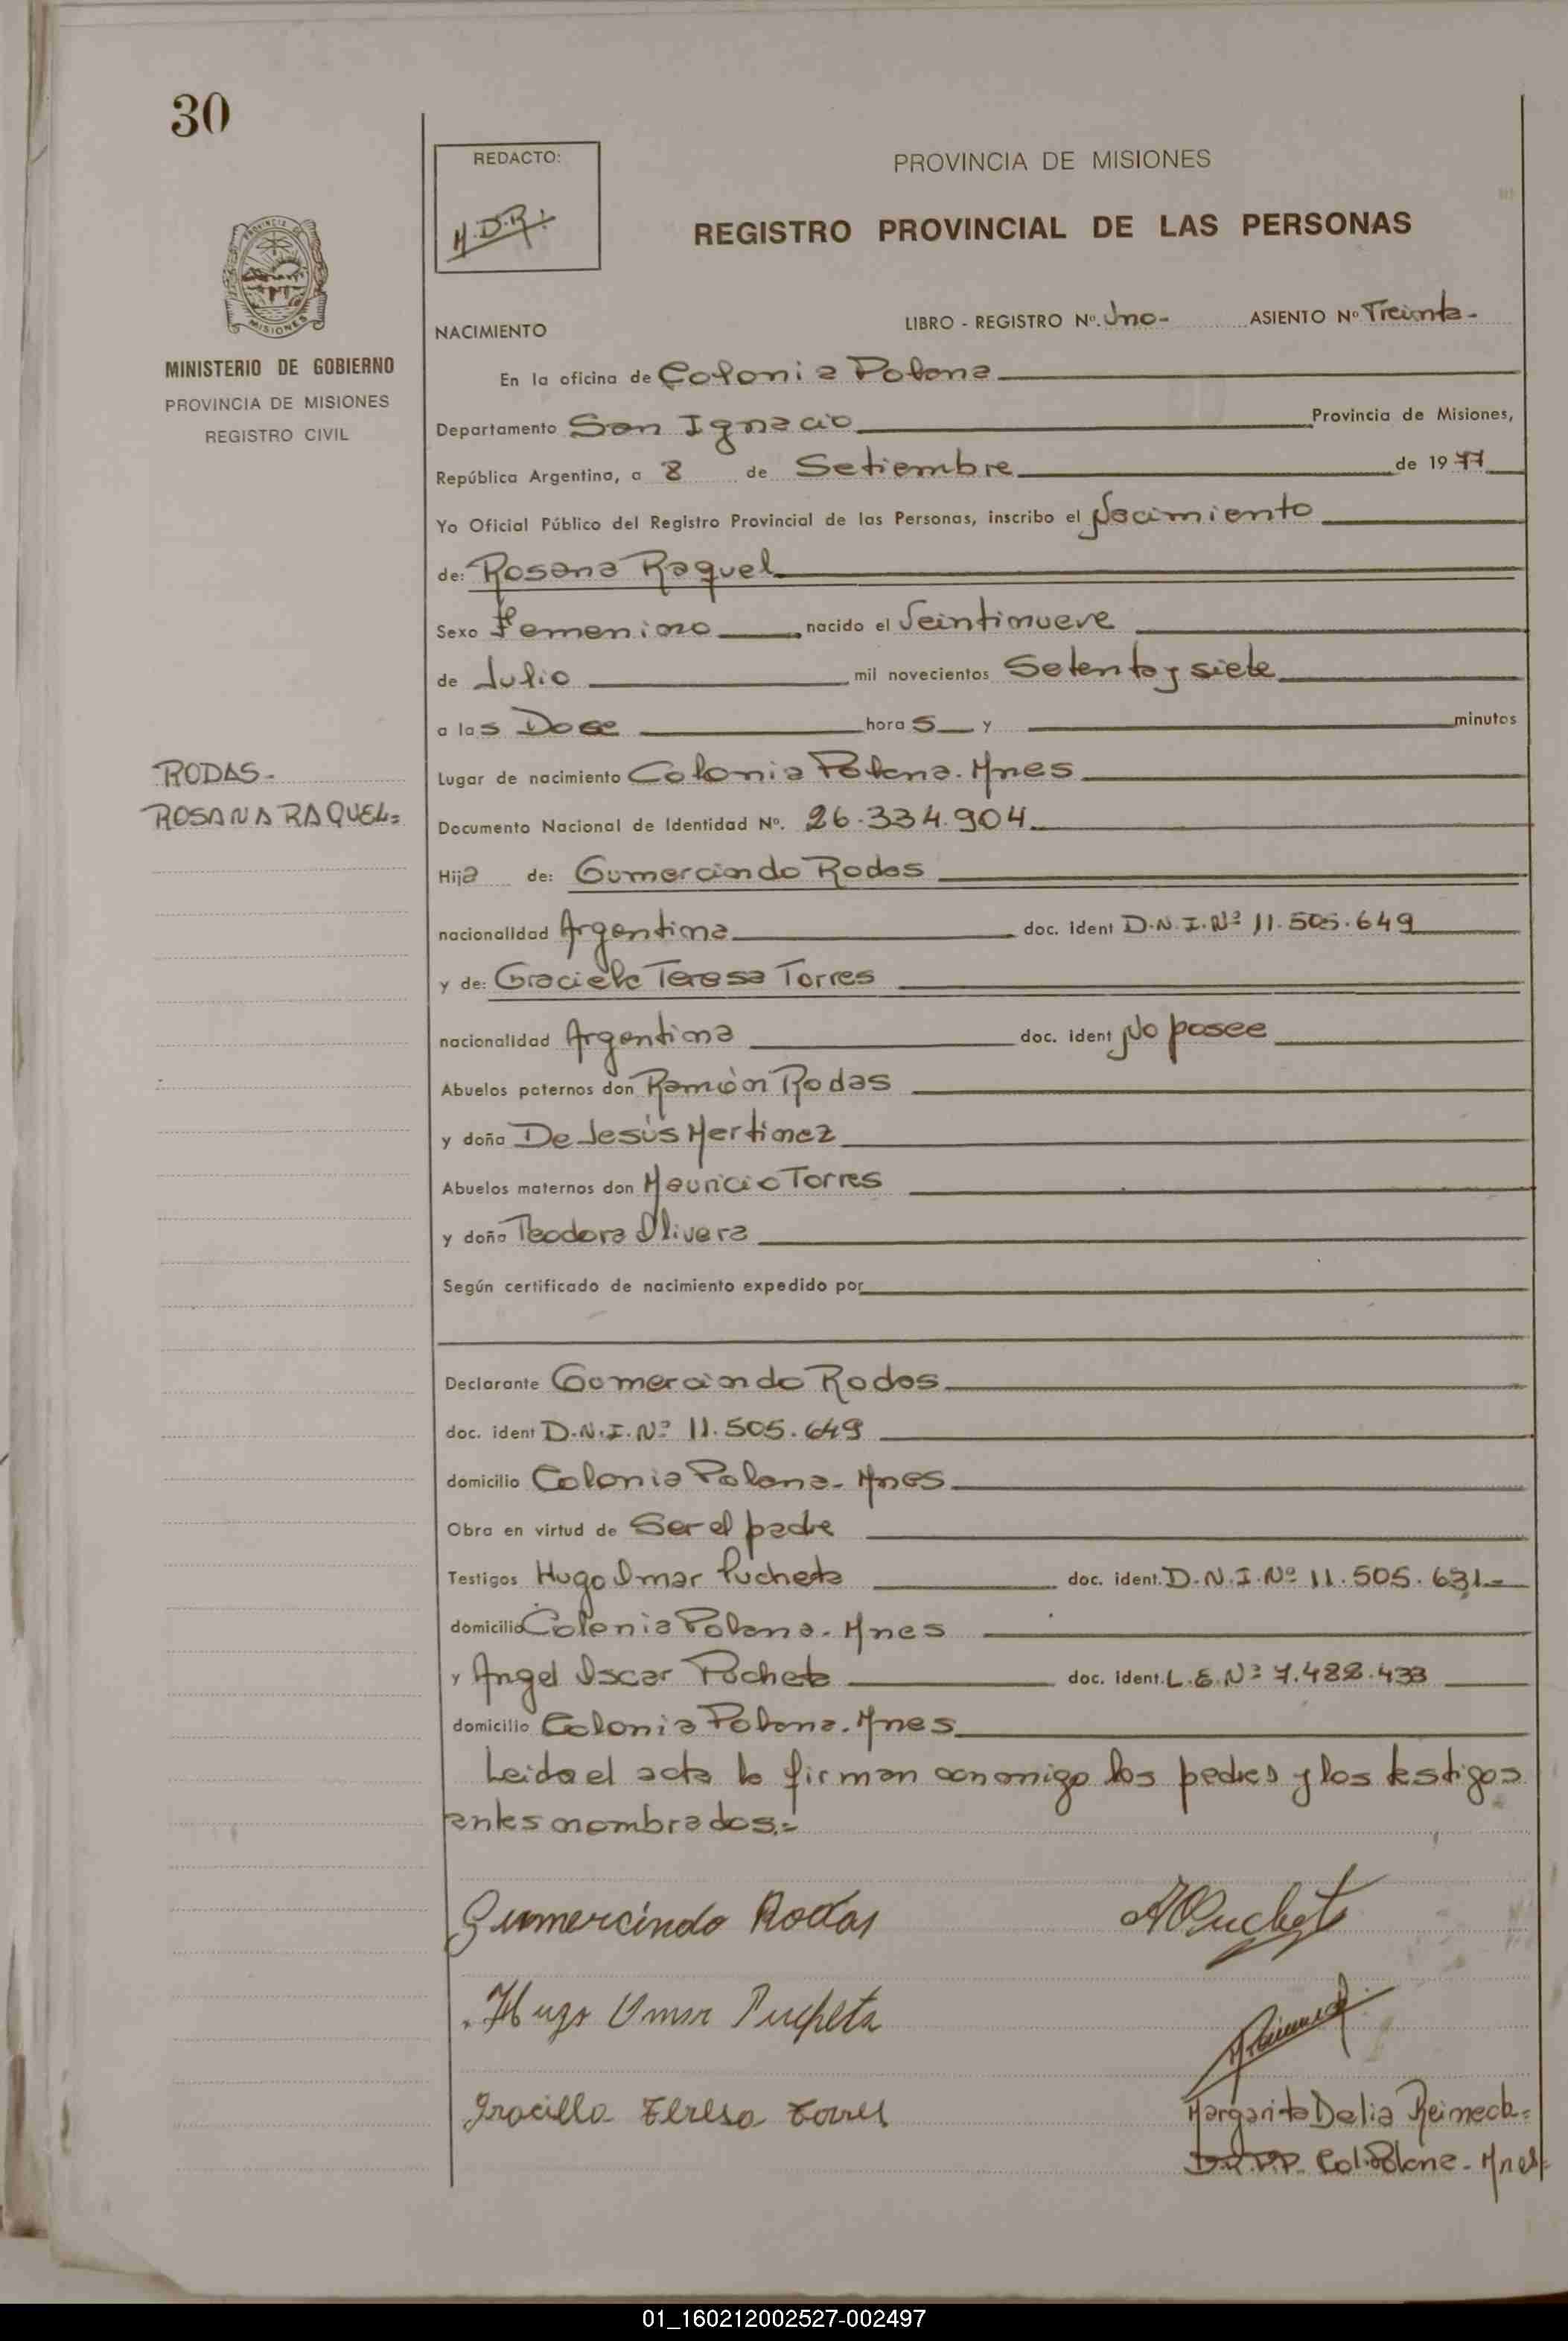 30
REDACTO:
M.D.R.
PROVINCIA DE MISIONES
REGISTRO PROVINCIAL DE LAS PERSONAS
PROVINCIA DE
MISIONES
MINISTERIO DE GOBIERNO
PROVINCIA DE MISIONES
REGISTRO CIVIL
NACIMIENTO LIBRO - REGISTRO Nº. Uno- ASIENTO Nº Treinta-
En la oficina de Colonia Polana
Departamento San Ignacio Provincia de Misiones,
República Argentina, a 8 de Setiembre de 1977
Yo Oficial Público del Registro Provincial de las Personas, inscribo el Nacimiento
de: Rosana Raquel
Sexo Femenino nacido el Veintinueve
de Julio mil novecientos Setenta y siete
a las Doce horas y minutos
RODAS-
ROSANA RAQUEL=
Lugar de nacimiento Colonia Polana. Mnes
Documento Nacional de Identidad Nº. 26.334.904
Hija de: Gumercindo Rodas
nacionalidad Argentina doc. ident D.N.I.Nº 11.505.649
y de: Graciela Teresa Torres
nacionalidad Argentina doc. ident No posee
Abuelos paternos don Ramón Rodas
y doña De Jesús Martinez
Abuelos maternos don Mauricio Torres
y doña Teodora Olivera
Según certificado de nacimiento expedido por
Declarante Gumercindo Rodas
doc. ident D.N.I.Nº 11.505.649
domicilio Colonia Polana- Mnes
Obra en virtud de Ser el padre
Testigos Hugo Omar Pucheta doc. ident. D.N.I.Nº 11.505.631-
domicilio Colonia Polana. Mnes
y Angel Oscar Pucheta doc. ident. L.E.Nº 7.488.433
domicilio Colonia Polana. Mnes
Leida el acta la firman conmigo los padres y los testigos
antes nombrados.=
Gumercindo Rodas AOPucheta
Hugo Omar Pucheta
Gracilla Teresa Torres
Margarita Delia Reineck=
Col. Polana - Mnes=
01_160212002527-002497